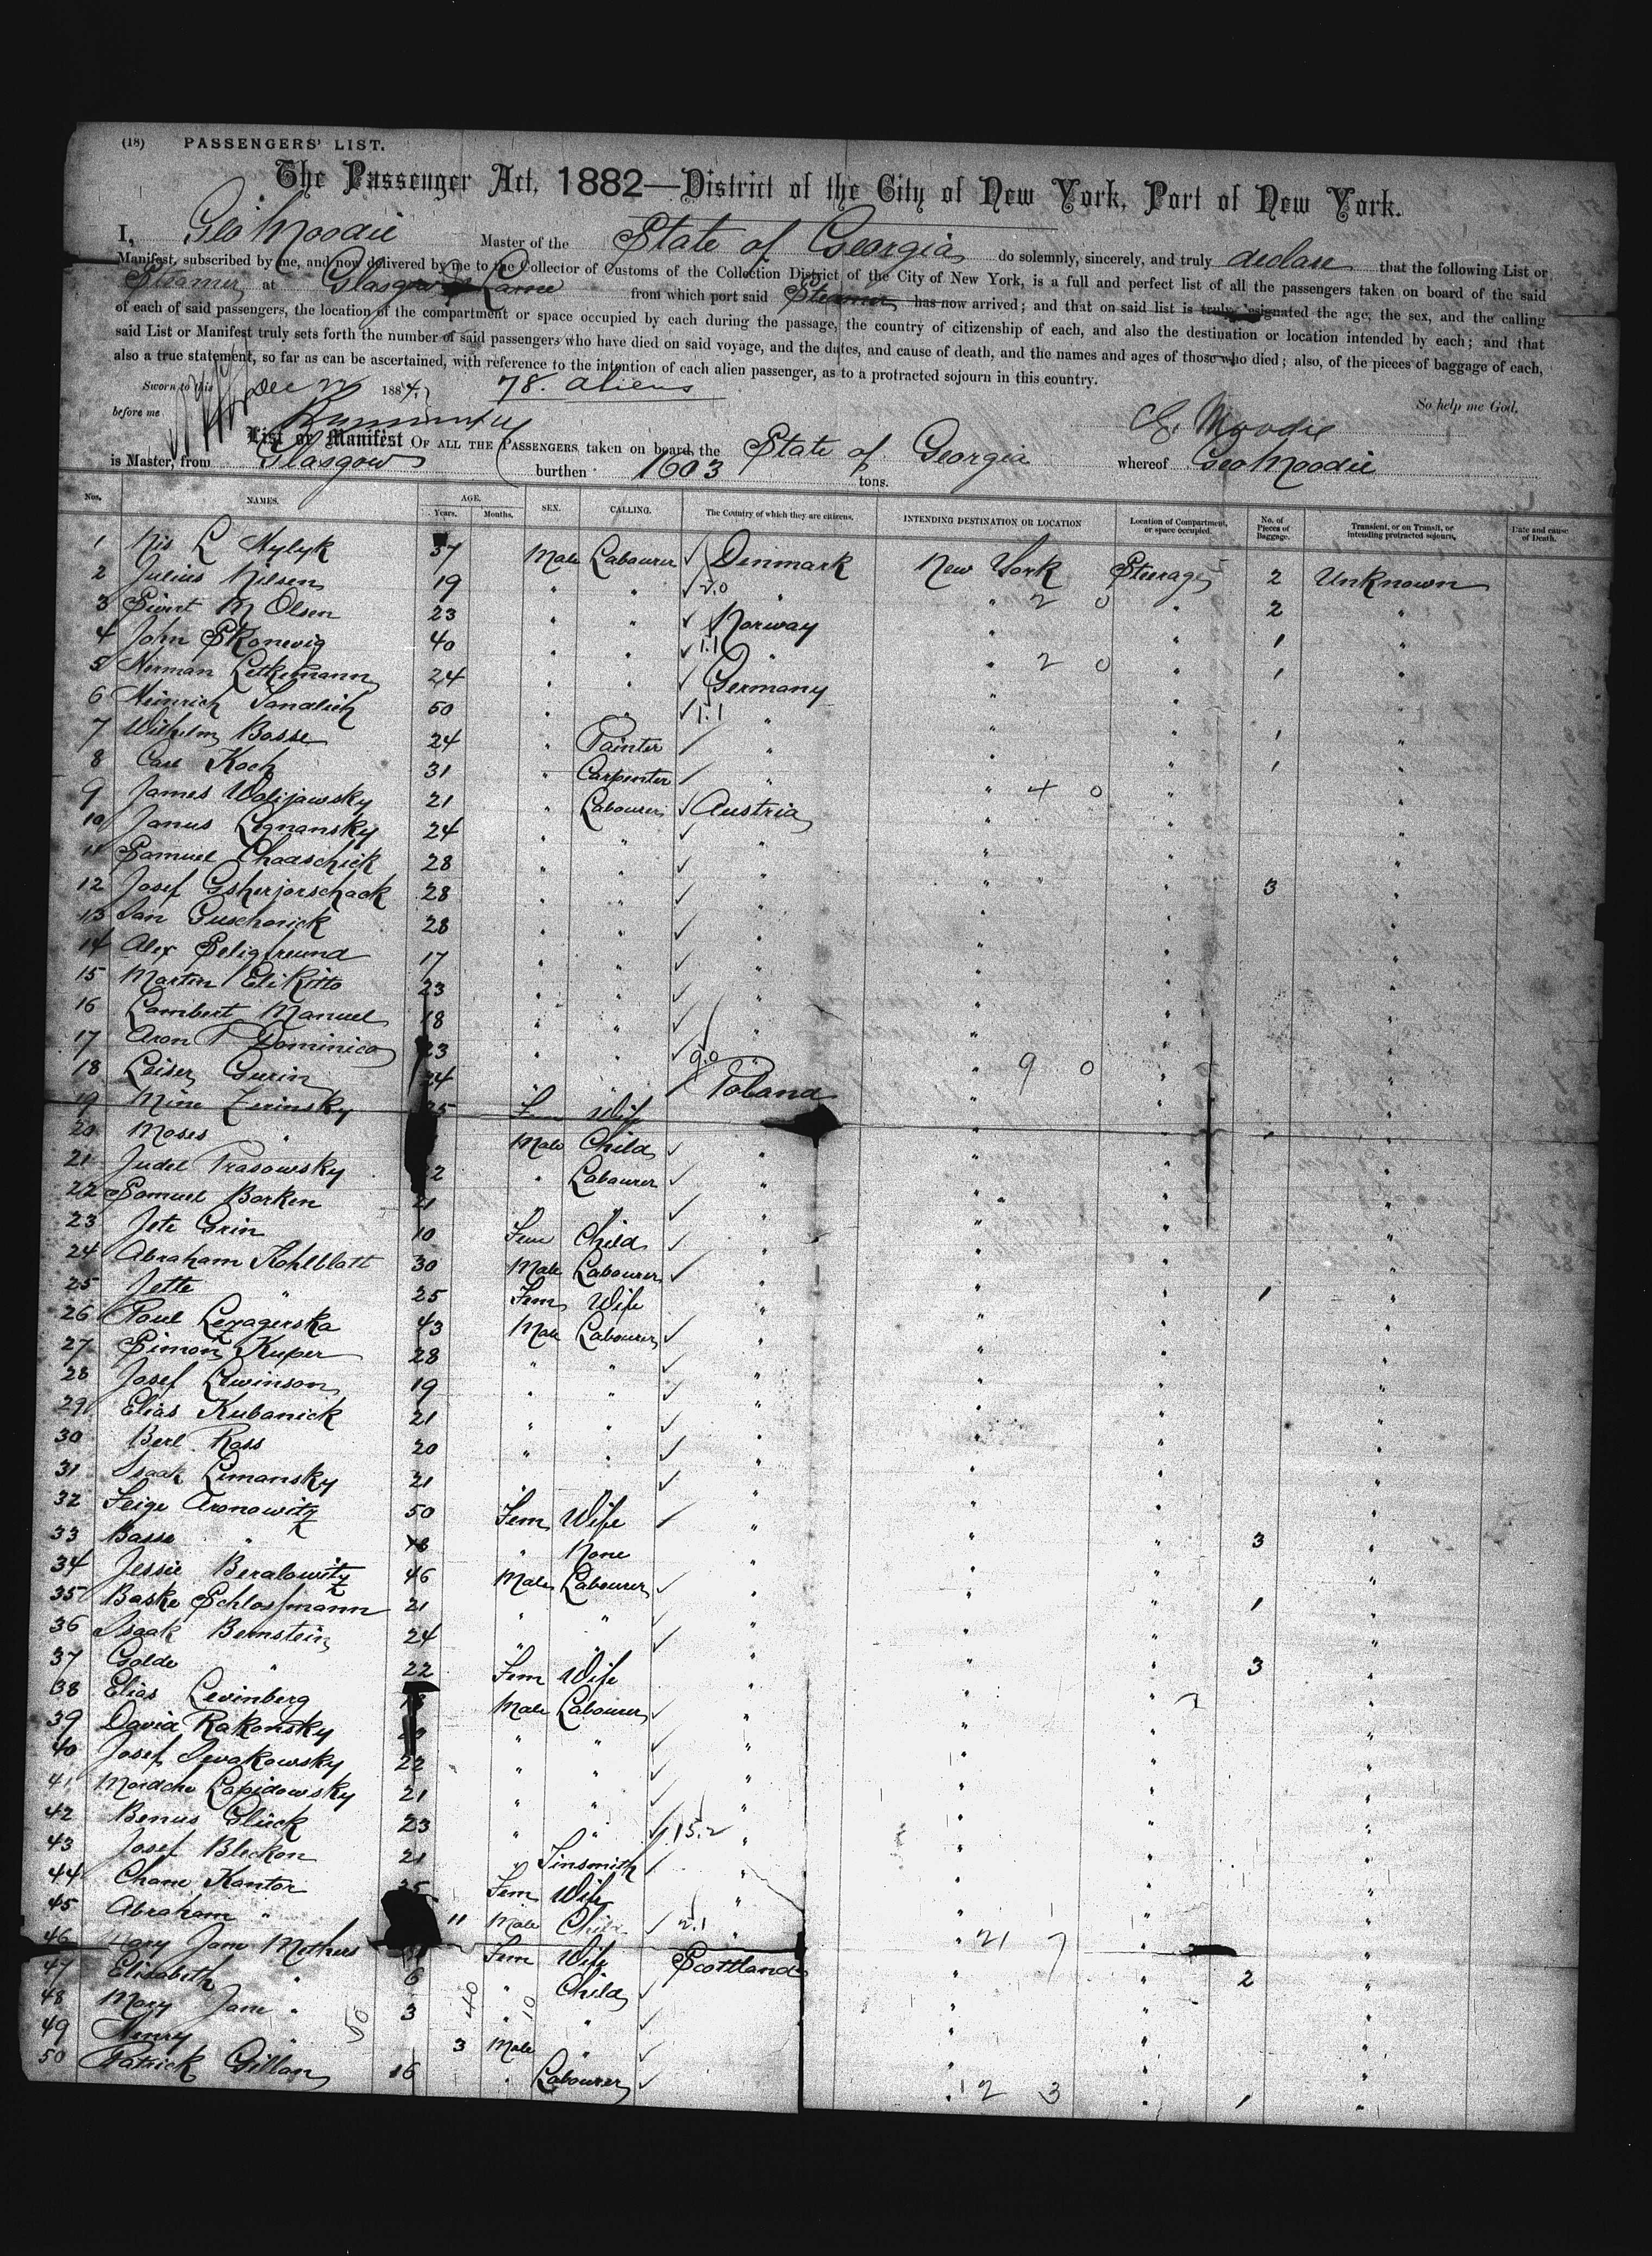 (18) PASSENGERS' LIST.
The Passenger Act, 1882—District of the City of New York, Port of New York.
I, Geo Moodie Master of the State of Georgia do solemnly, sincerely, and truly declare that the following List or
Manifest, subscribed by me, and now delivered by me to the Collector of Customs of the Collection District of the City of New York, is a full and perfect list of all the passengers taken on board of the said
Steamer at Glasgow & Larne from which port said Steamer has now arrived; and that on said list is truly designated the age, the sex, and the calling
of each of said passengers, the location of the compartment or space occupied by each during the passage, the country of citizenship of each, and also the destination or location intended by each; and that
said List or Manifest truly sets forth the number of said passengers who have died on said voyage, and the dates, and cause of death, and the names and ages of those who died; also, of the pieces of baggage of each,
also a true statement, so far as can be ascertained, with reference to the intention of each alien passenger, as to a protracted sojourn in this country.
Sworn to this Dec 1884. 78. aliens So help me God.
before me G. Moodie
List or Manifest OF ALL THE PASSENGERS taken on board the State of Georgia whereof Geo Moodie
is Master, from Glasgow burthen 1603 tons.
Nos. NAMES. AGE. Years. Months. SEX. CALLING. The Country of which they are citizens. INTENDING DESTINATION OR LOCATION Location of Compartment, or space occupied. No. of Pieces of Baggage. Transient, or on Transit, or intending protracted sojourn. Date and cause of Death.
1 Nis L Nylyk 37 Male Labourer Denmark New York Steerage 2 Unknown
2 Julius Nilsen 19 " " 2.0 " " 2 0 " 2 "
3 Sivert M Olsen 23 " " Norway " " 1 "
4 John Skonevig 40 " " 1.1 " " 2 0 " 1 "
5 Herman Letkemann 24 " " Germany " "
6 Heinrich Sandlich 50 " " 1.1 " " " 1 "
7 Wilhelm Bosse 24 " Painter " " " 1 "
8 Carl Koch 31 " Carpenter " " 4 0 " "
9 James Walijawsky 21 " Labourer Austria " " "
10 Janus Lignansky 24 " " " " " "
11 Samuel Chadschick 28 " " " " " 3 "
12 Josef Gsherjorschack 28 " " " " " "
13 Jan Guschorick 28 " " " " " "
14 Alex Seligfreund 17 " " " " " "
15 Martin Elikitto 23 " " " " " "
16 Lambert Manuel 18 " " " " " "
17 Aron P Dominico 23 " " 9.0 " " 9 0 " "
18 Leiser Gurin 24 " " Poland " " "
19 Mine Zerinsky 25 Fem Wife " " " 1 "
20 Moses " Male Child " " " "
21 Judel Prasowsky 22 " Labourer " " " "
22 Samuel Borken 21 " " " " " "
23 Jete Grin 10 Fem Child " " " "
24 Abraham Kohlblatt 30 Male Labourer " " " 1 "
25 Jette " 25 Fem Wife " " " "
26 Paul Lezagerska 43 Male Labourer " " " "
27 Simon Kuper 28 " " " " " "
28 Josef Lewinson 19 " " " " " "
29 Elias Kubanick 21 " " " " " "
30 Berl Ross 20 " " " " " "
31 Isaak Limansky 21 " " " " " "
32 Feige Aronowitz 50 Fem Wife " " " 3 "
33 Basse " 18 " None " " " "
34 Jessie Beralowitz 46 Male Labourer " " " 1 "
35 Baske Schlossmann 21 " " " " " "
36 Isaak Bernstein 24 " " " " " 3 "
37 Golde " 22 Fem Wife " " " "
38 Elias Levinberg 18 Male Labourer " " " "
39 David Rakonsky " " " " " "
40 Josef Iwakowsky 22 " " " " " "
41 Mordche Lapidowsky 21 " " " " " "
42 Benus Glück 23 " " 15.2 " " " "
43 Josef Bleckon 21 " Tinsmith " " " "
44 Chane Kantor 25 Fem Wife " " " "
45 Abraham " 11 Male Child 2.1 " " 21 7 " "
46 Mary Jane Methers Fem Wife Scottland " " 2 "
47 Elizabeth " 6 " Child " " "
48 Mary Jane " 50 3 40 " 10 " " " "
49 Henry " 3 Male " " " "
50 Patrick Gillan 16 " Labourer " 2 3 " 1 "